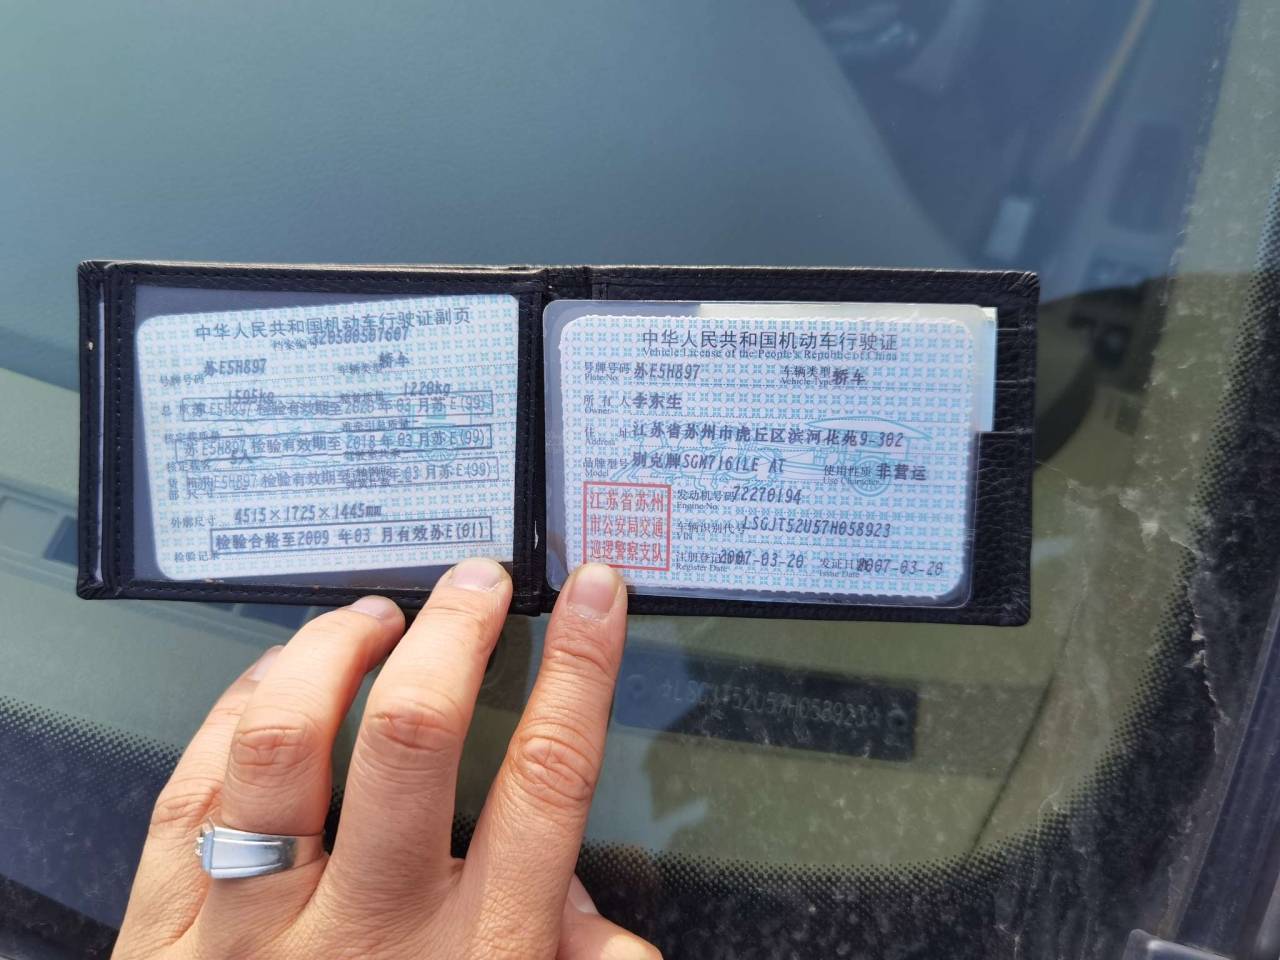 中华人民共和国机动车行驶证副页
档案编号 320500507607
号牌号码 苏E5H897 车辆类型 轿车
1595kg 1220kg
苏E5H897 检验有效期至2020年03月苏E(99)
苏E5H897 检验有效期至2018年03月苏E(99)
核定载客 5人
苏E5H897 检验有效期至 年03月苏E(99)
外廓尺寸 4515×1725×1445mm
检验记录 检验合格至2009 年03 月有效苏E(01)
中华人民共和国机动车行驶证
Vehicle License of the People's Republic of China
号牌号码 苏E5H897 车辆类型 轿车
Plate No. Vehicle Type
所有人 李东生
Owner
住址 江苏省苏州市虎丘区滨河花苑9-302
Address
品牌型号 别克牌SGM7161LE AT 使用性质 非营运
Model Use Character
江苏省苏州
市公安局交通
巡逻警察支队
发动机号码 72270194
Engine No.
车辆识别代号 LSGJT52U57H058923
VIN
注册登记 2007-03-20 发证日期 2007-03-20
Register Date Issue Date
LSGJT52U57H058923